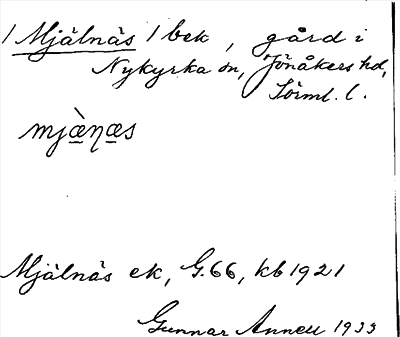 / Mjälnäs / bek, gård i
Nykyrka sn, Jönåkers hd,
Sörml. l.
mjæ̀ŋæs
Mjälnäs ek, G.66, kb 1921
Gunnar Annell 1933